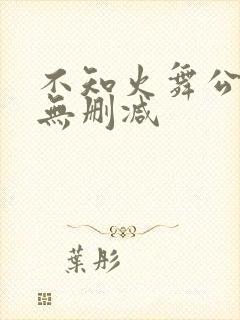 不知火舞公
無删减
葉彤